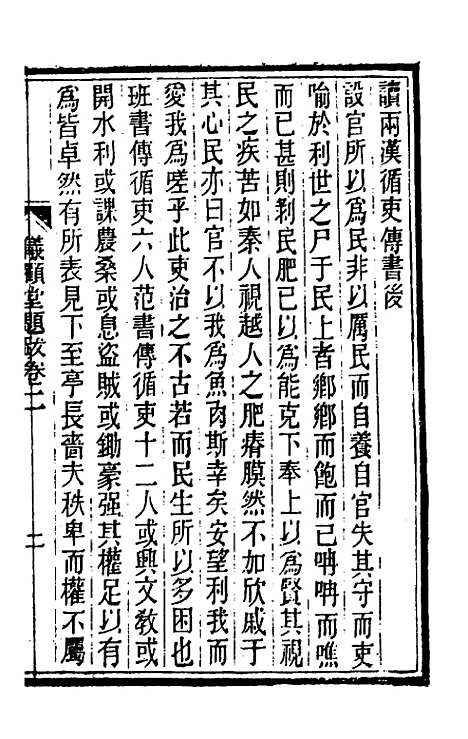 讀兩漢循吏傳書後
設官所以爲民非以厲民而自養自官失其守而吏
喻於利世之尸于民上者鄉鄉而飽而已呥呥而噍
而已甚則剥民肥已以爲能克下奉上以爲賢其視
民之疾苦如秦人視越人之肥瘠膜然不加欣戚于
其心民亦曰官不以我爲魚肉斯幸矣安望利我而
愛我爲嗟乎此吏治之不古若而民生所以多困也
班書傳循吏六人范書傳循吏十二人或興文敎或
開水利或課農桑或息盜賊或鋤豪强其權足以有
爲皆卓然有所表見下至亭長嗇夫秩卑而權不屬
儀顧堂題跋卷二
二